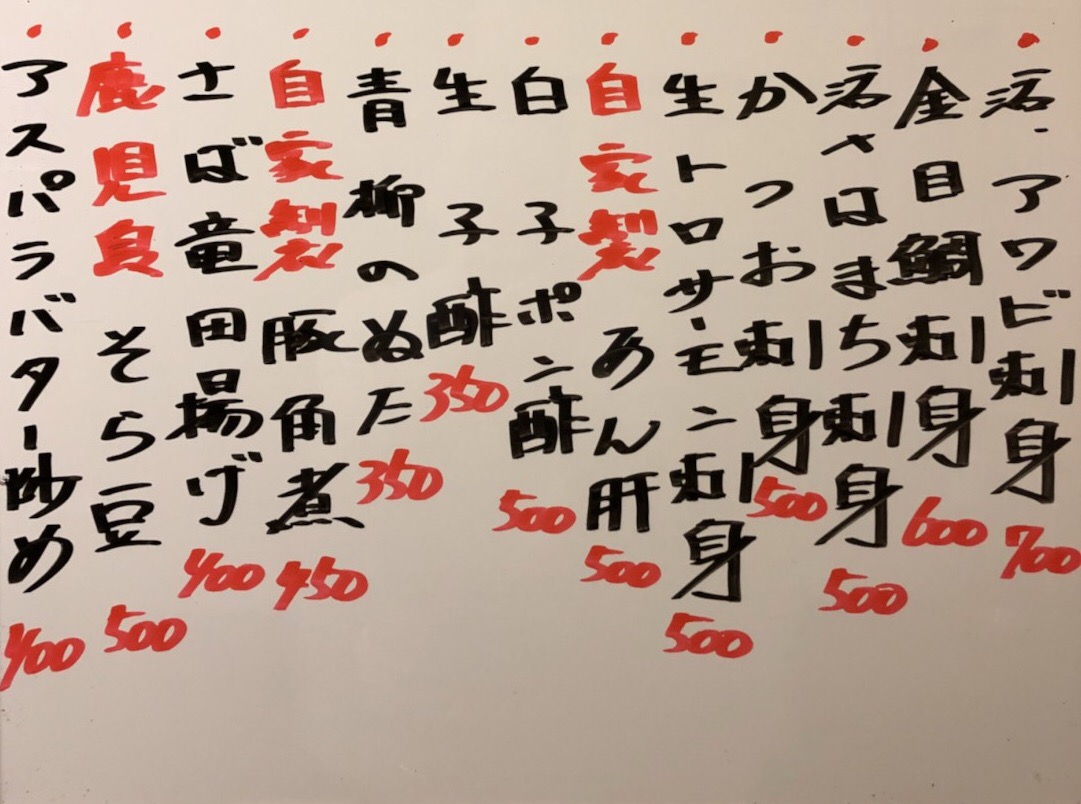 活アワビ刺身 700
金目鯛刺身 600
活〆はまち刺身 500
かつお刺身 500
生トロサーモン刺身 500
自家製あん肝 500
白子ポン酢 500
生子酢 350
青柳のぬた 350
自家製豚角煮 450
さば竜田揚げ 400
鹿児島そら豆 500
アスパラバター炒め 400